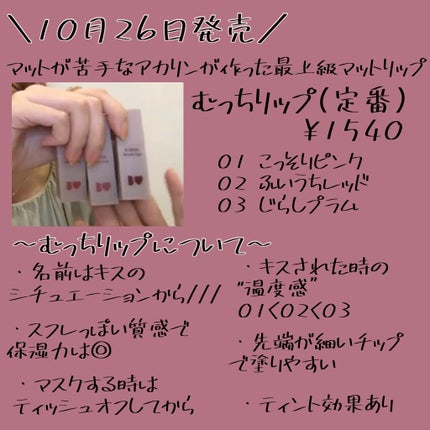 ＼10月26日発売／
マットが苦手なアカリンが作った最上級マットリップ
むっちリップ(定番)
¥1540
01 こっそりピンク
02 ふいうちレッド
03 じらしプラム
〜むっちリップについて〜
・名前はキスの
シチュエーションから///
・スフレっぽい質感で
保湿力は◎
・マスクする時は
ティッシュオフしてから
・キスされた時の
"温度感"
01<02<03
・先端が細いチップ
で塗りやすい
・ティント効果あり